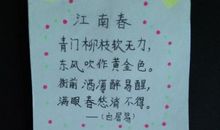 江南春
青门柳枝软无力,
东风吹作黄金色。
街前酒薄醉易醒,
满眼春愁消不得。
——(白居易)